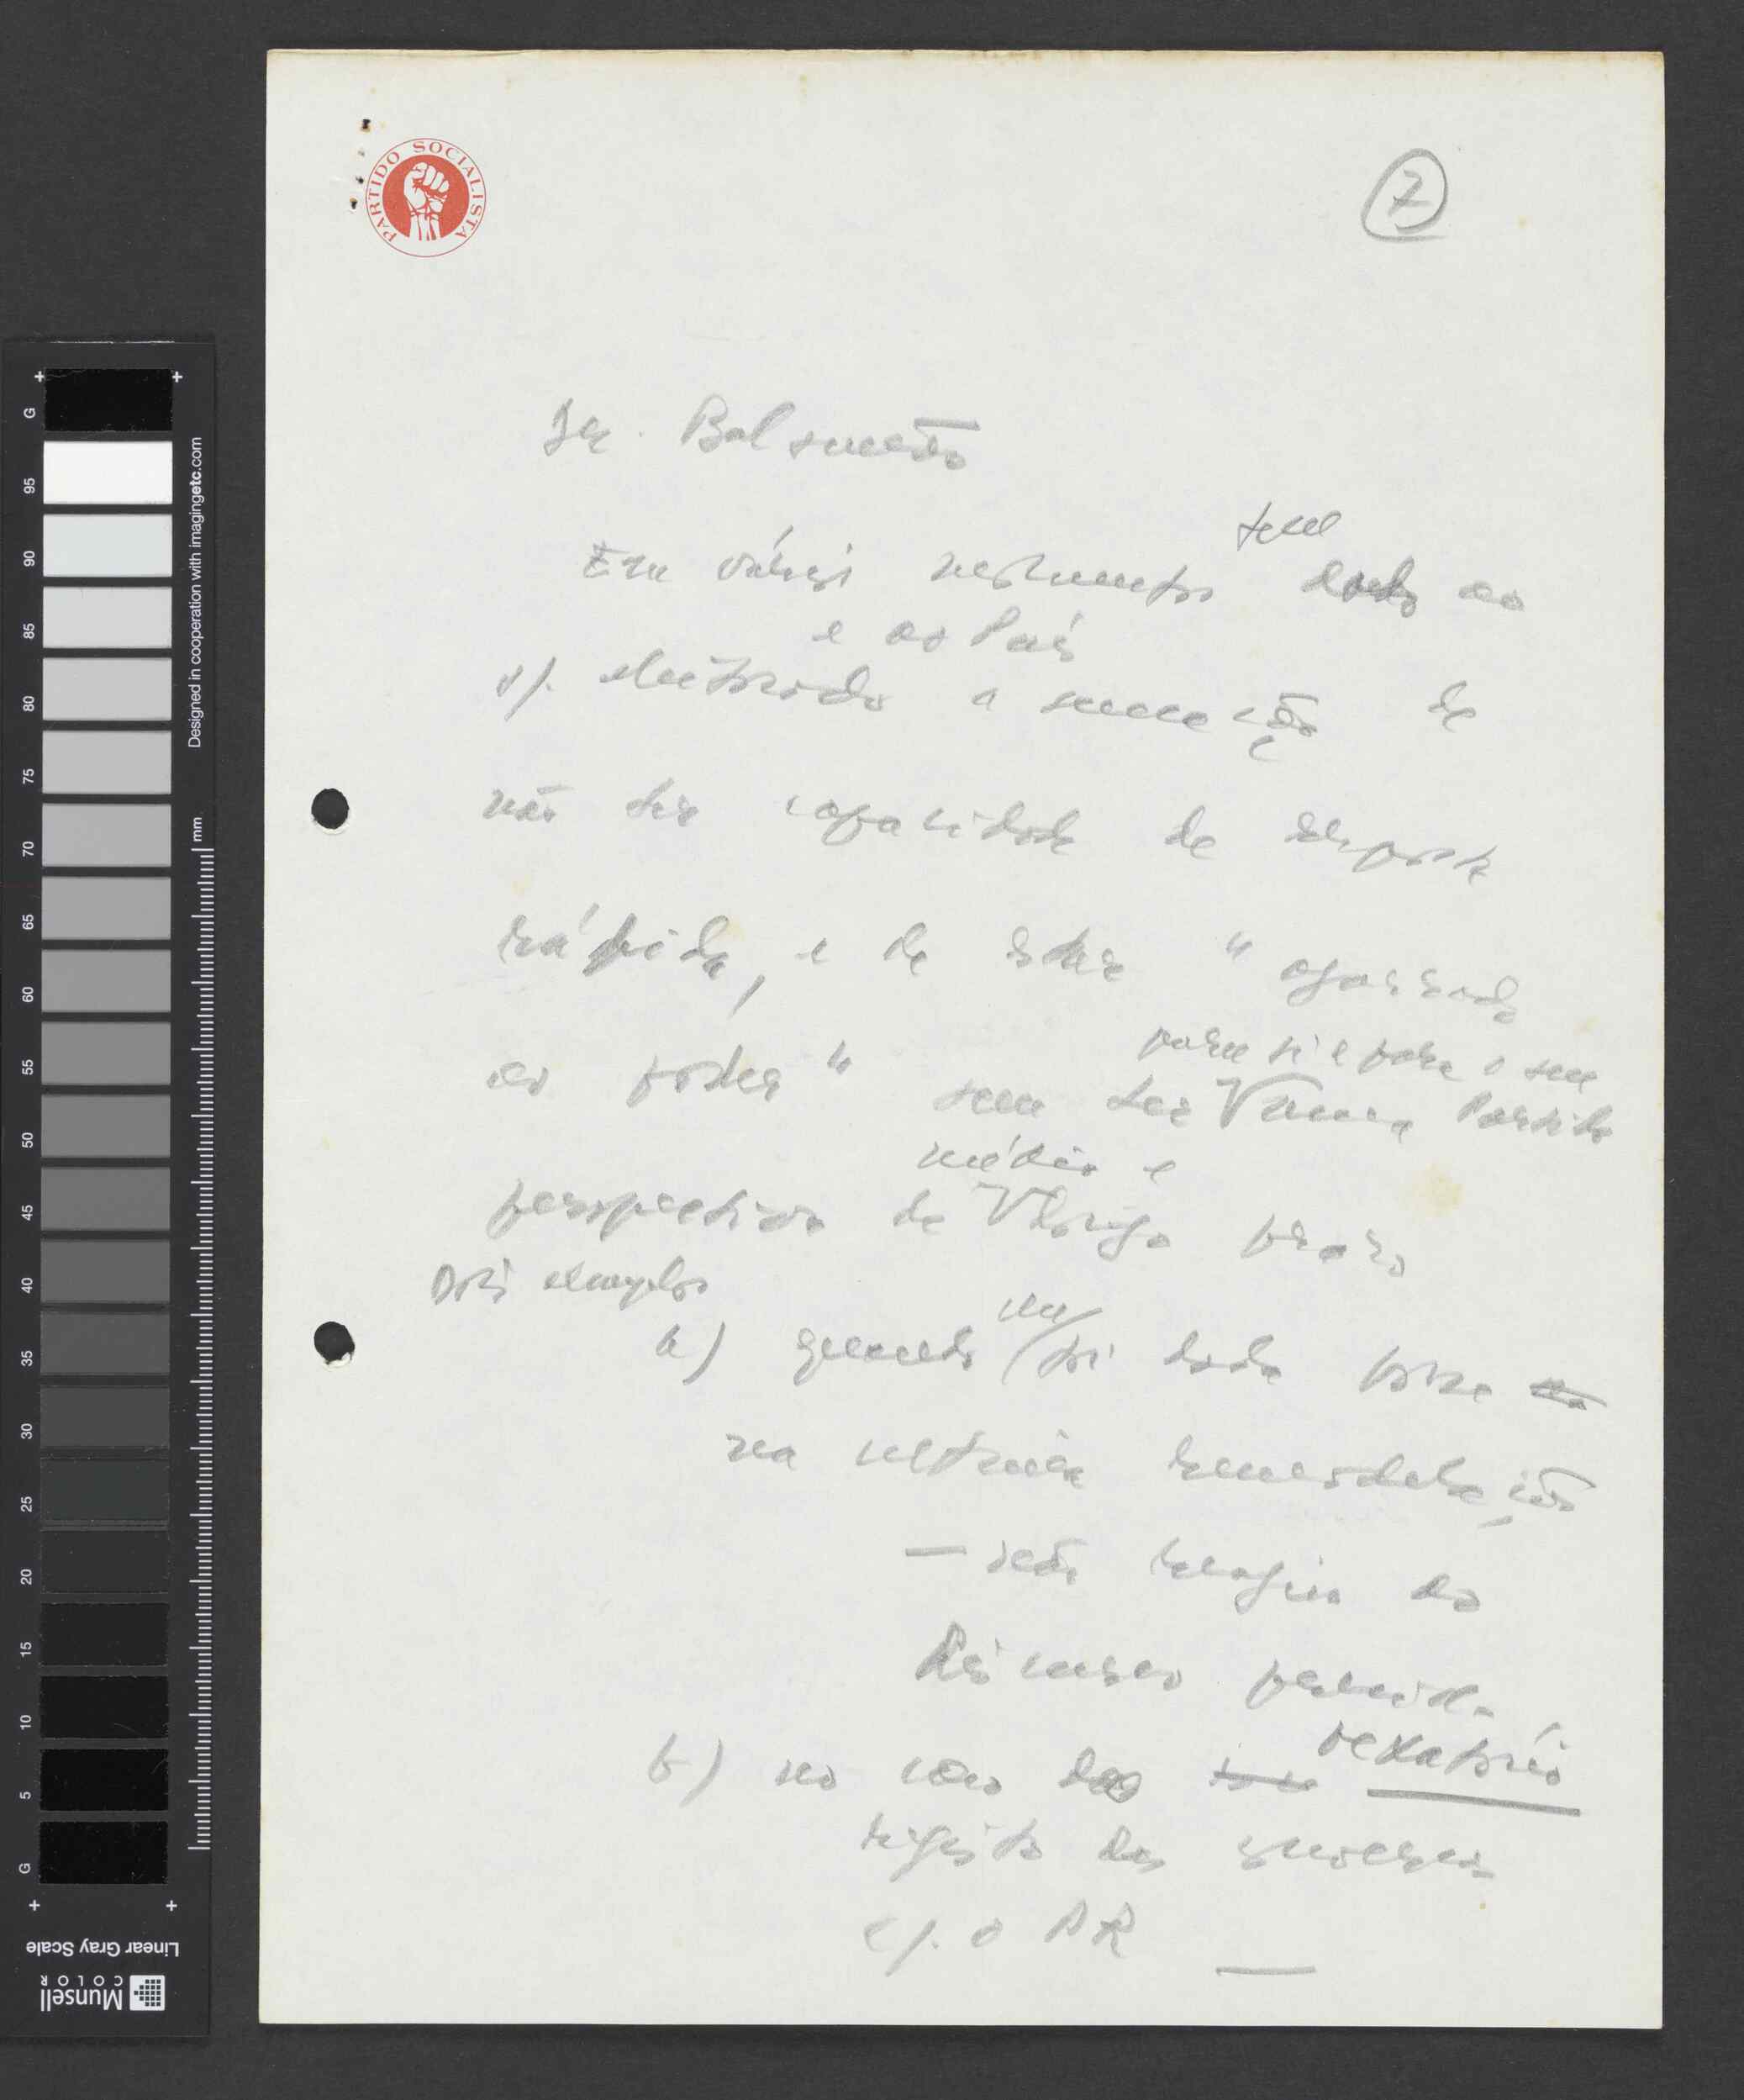 PARTIDO SOCIALISTA
7
Dr. Balsemão
tem
Em vários momentos dado ao
e ao País
s/. eleitorado a sensação de
não ter capacidade de resposta
rápida, e de estar "agarrado
para si e para o seu
ao poder" sem ter uma Partido
médio e
perspectiva de longo prazo
Dois exemplos
a) quando foi dada posse
na última remodelação
— não reagiu ao
discurso
b) no caso das vexatório
registo das conversas
c/. o PR
Designed in cooperation with imagingetc.com
mm
G 95 90 85 80 75 70 65 60 55 50 45 40 35 30 25 20 15 10 5 G
Linear Gray Scale
Munsell
COLOR